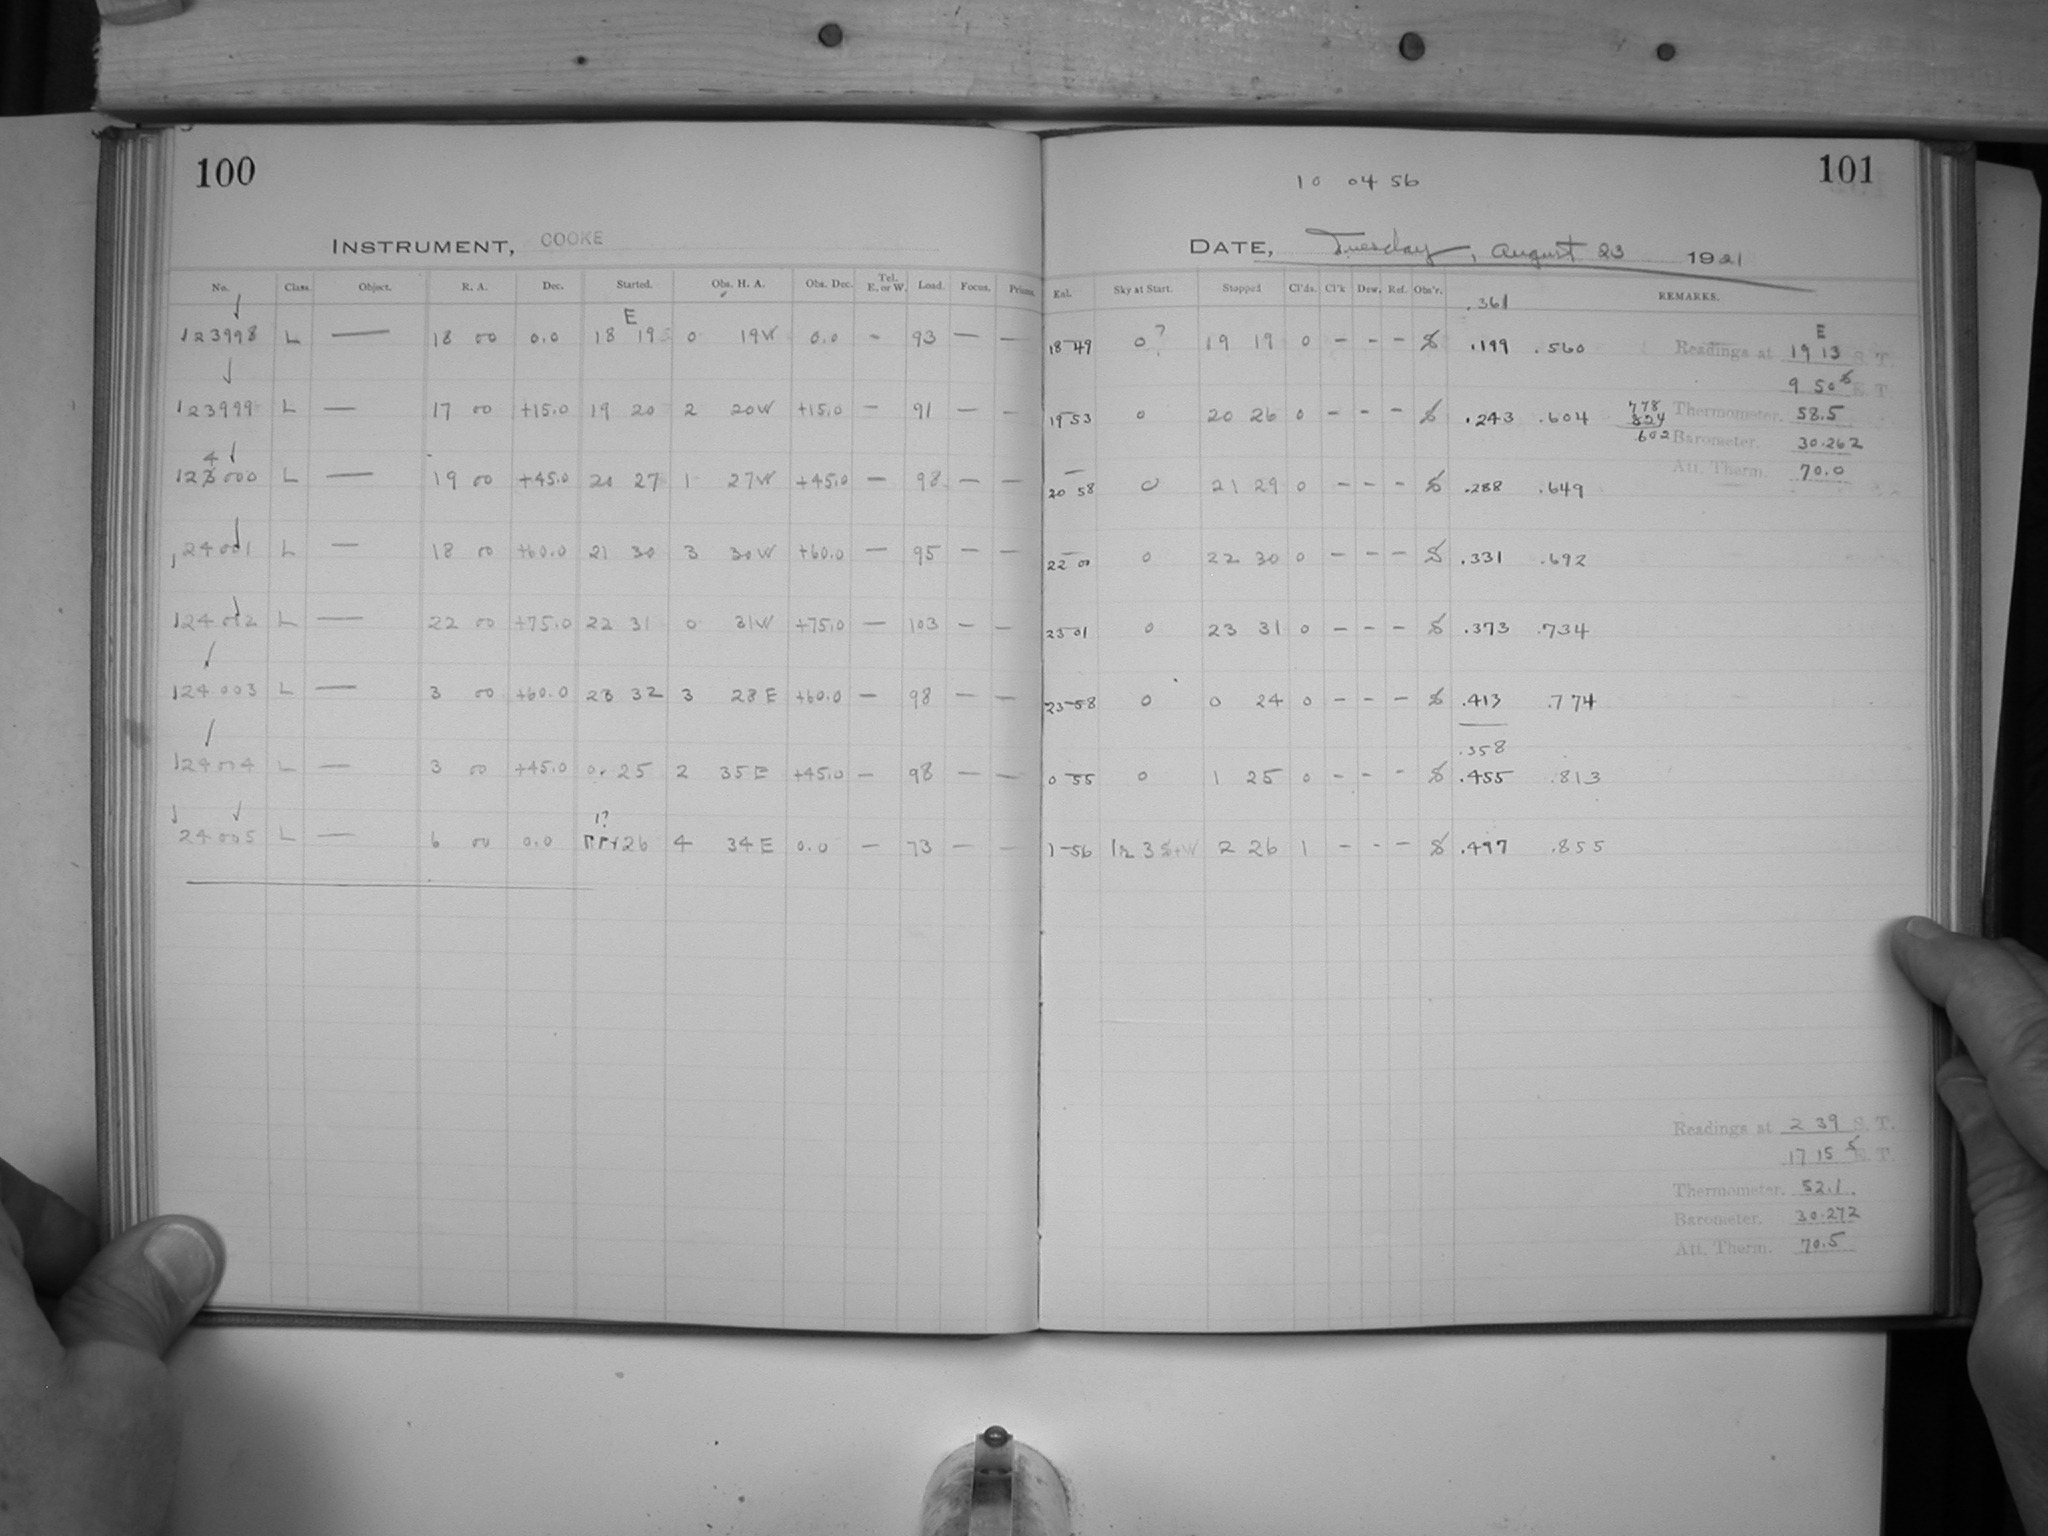 100
INSTRUMENT, COOKE
No. Class. Object. R. A. Dec. Started. Obs. H. A. Obs. Dec. Tel. E. or W. Load. Focus. Prisms.
E
123998 L — 18 00 0.0 18 19 0 19W 0.0 — 93 — —
123999 L — 17 00 +15.0 19 20 2 20W +15.0 — 91 — —
4
123000 L — 19 00 +45.0 20 27 1 27W +45.0 — 98 — —
124001 L — 18 00 +60.0 21 30 3 30W +60.0 — 95 — —
124002 L — 22 00 +75.0 22 31 0 31W +75.0 — 103 — —
124003 L — 3 00 +60.0 23 32 3 28E +60.0 — 98 — —
124004 L — 3 00 +45.0 0 25 2 35E +45.0 — 98 — —
1?
24005 L — 6 00 0.0 26 4 34E 0.0 — 73 — —
101
10 04 56
DATE, Tuesday, August 23 1921
Exl. Sky at Start. Stopped Cl'ds. Cl'k Dew. Ref. Obs'r. REMARKS.
.361
18 49 0? 19 19 0 — — — S .199 .560
19 53 0 20 26 0 — — — S .243 .604
20 58 0 21 29 0 — — — S .288 .649
22 00 0 22 30 0 — — — S .331 .692
23 01 0 23 31 0 — — — S .373 .734
23 58 0 0 24 0 — — — S .413 .774
.358
0 55 0 1 25 0 — — — S .455 .813
1 56 2 26 1 — — — S .497 .855
778
824
602
E
Readings at 19 13 S. T.
9 50 E. T.
Thermometer. 58.5
Barometer. 30.262
Att. Therm. 70.0
Readings at 2 39 S. T.
17 15 5 E. T.
Thermometer. 52.1
Barometer. 30.272
Att. Therm. 70.5